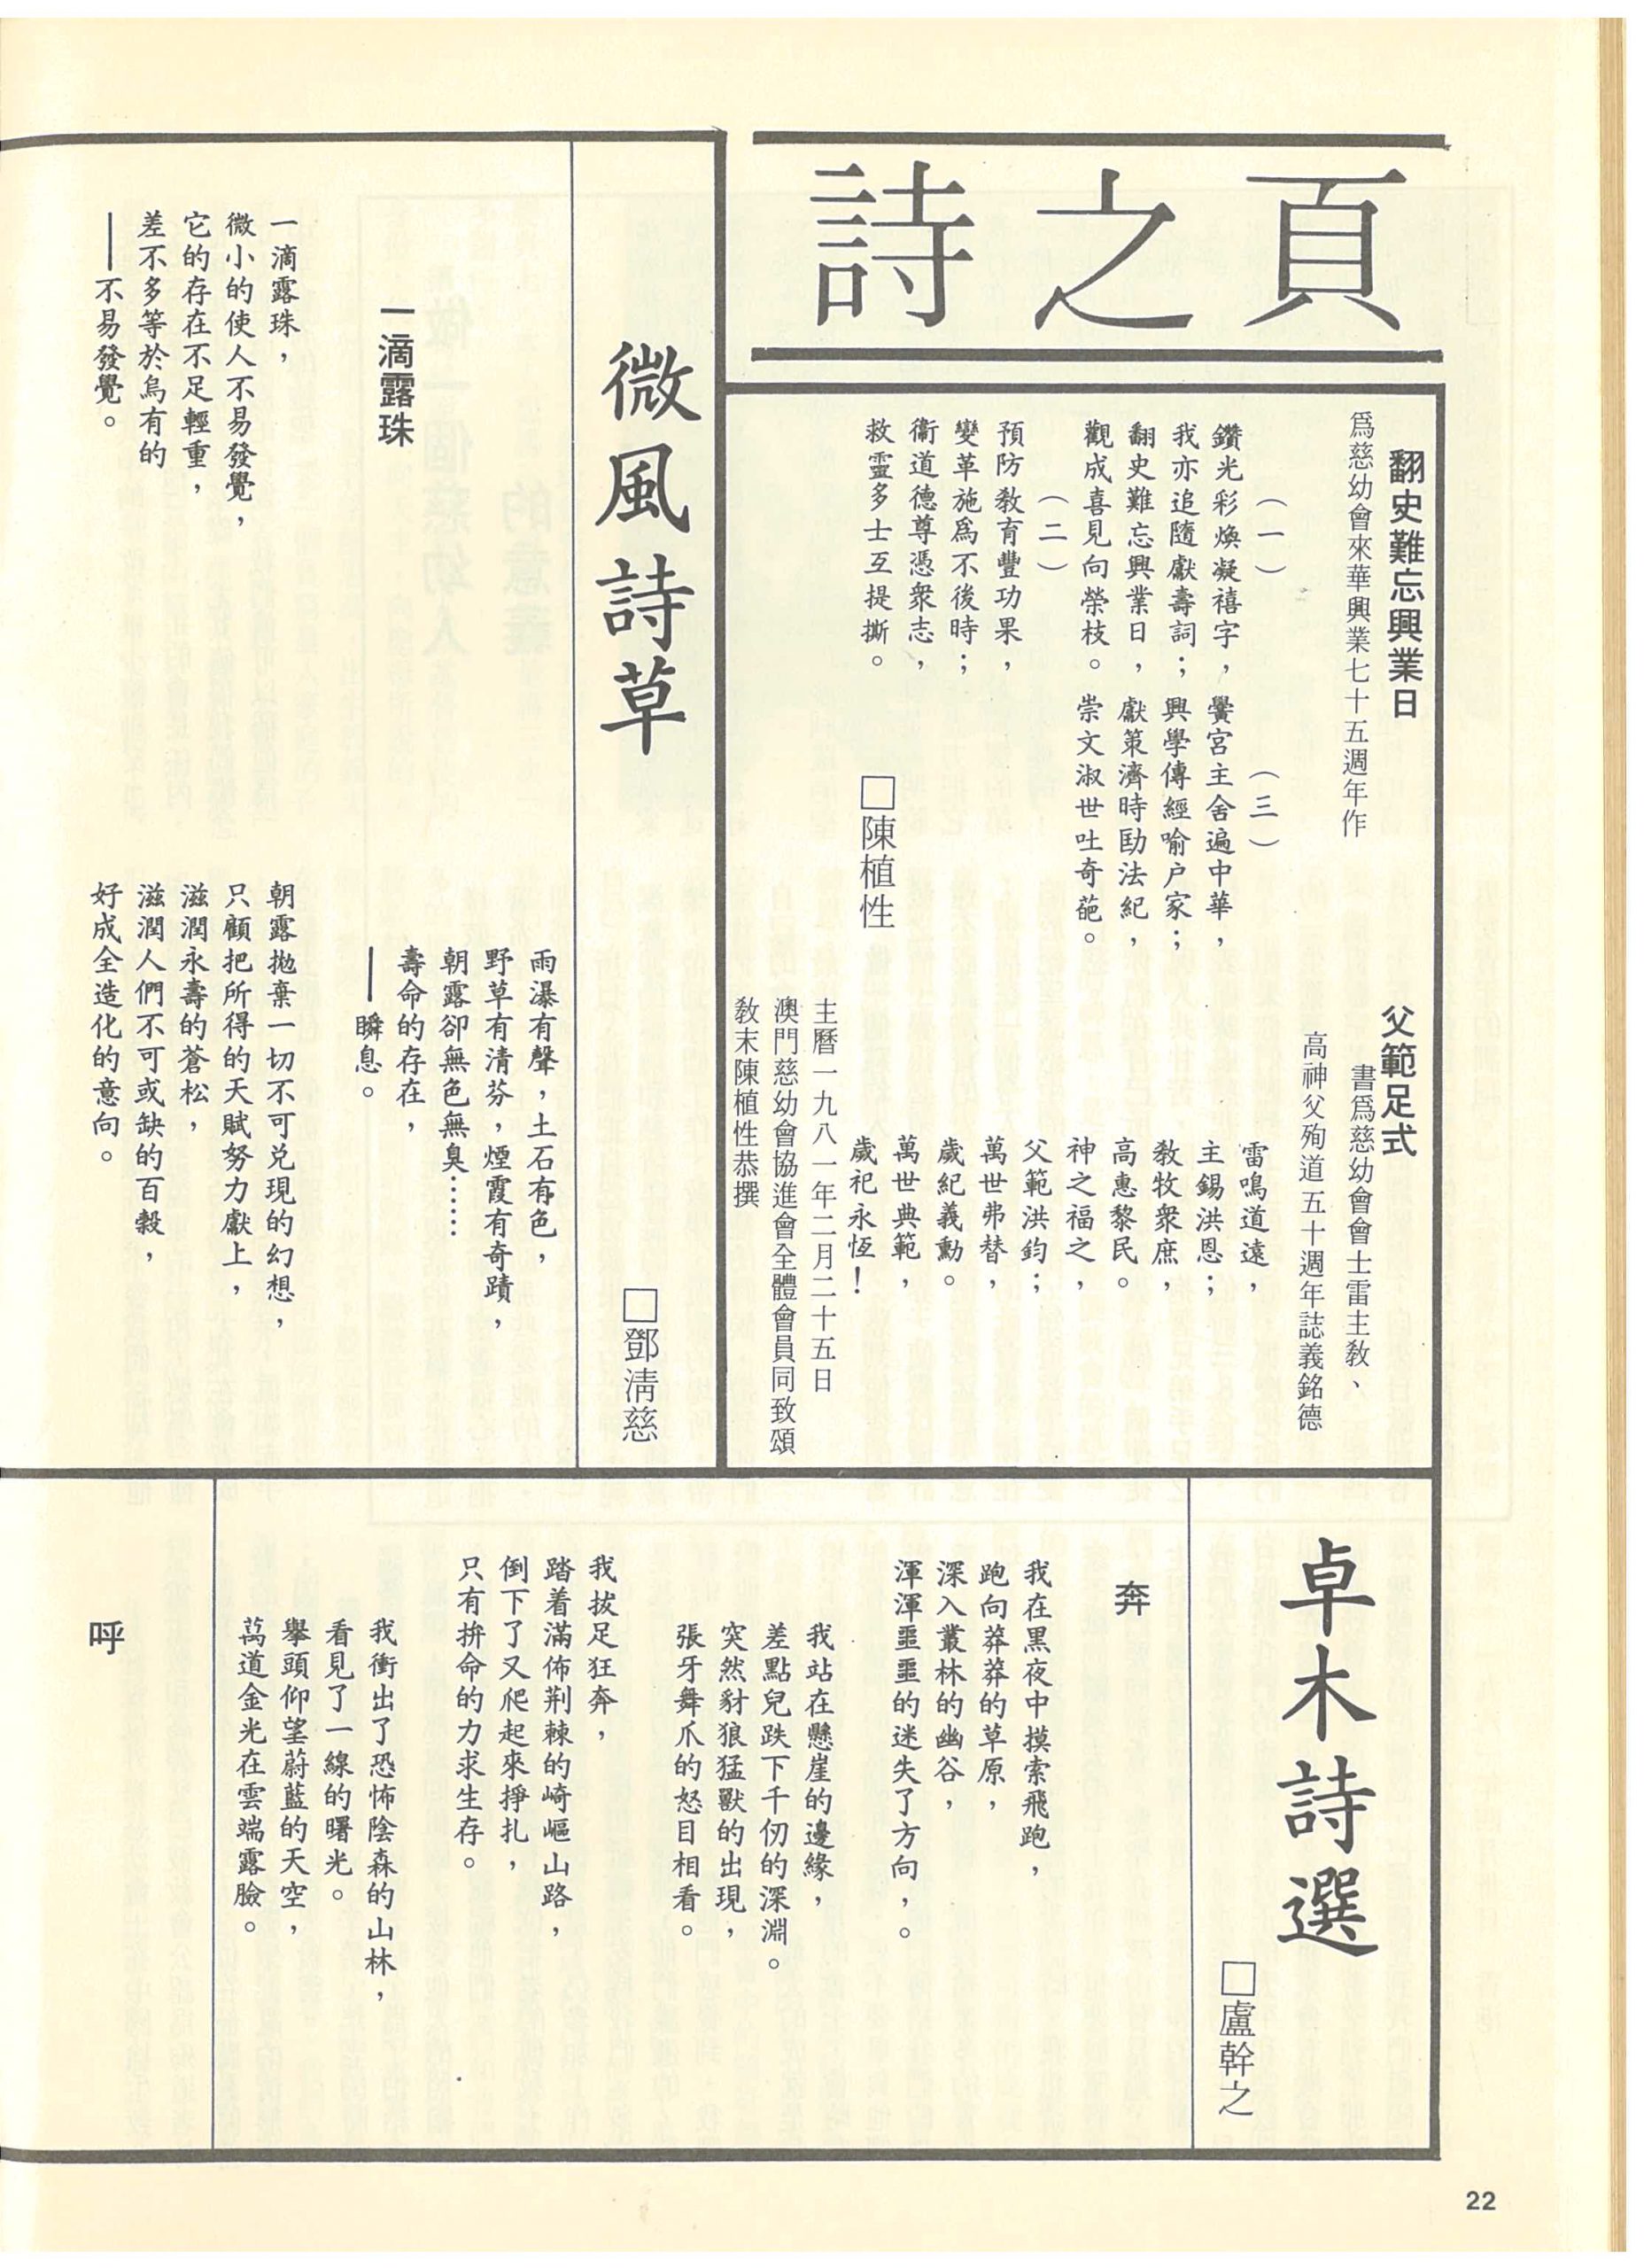 詩之頁
翻史難忘興業日
爲慈幼會來華興業七十五週年作
（一）
鑽光彩煥凝禧字，
我亦追隨獻壽詞；
翻史難忘興業日，
觀成喜見向榮枝。
（二）
預防敎育豐功果，
變革施爲不後時；
衞道德尊憑衆志，
救靈多士互提撕。
（三）
黌宮主舍遍中華，
興學傳經喻户家；
獻策濟時劻法紀，
崇文淑世吐奇葩。
□陳植性
父範足式
書爲慈幼會會士雷主敎、
高神父殉道五十週年誌義銘德
雷鳴道遠，
主錫洪恩；
敎牧衆庶，
高惠黎民。
神之福之，
父範洪鈞；
萬世弗替，
歲紀義勳。
萬世典範，
歲祀永恆！
主曆一九八一年二月二十五日
澳門慈幼會協進會全體會員同致頌
敎末陳植性恭撰
微風詩草
□鄧淸慈
一滴露珠
一滴露珠，
微小的使人不易發覺，
它的存在不足輕重，
差不多等於烏有的
——不易發覺。
雨瀑有聲，土石有色，
野草有清芬，煙霞有奇蹟，
朝露卻無色無臭……
壽命的存在，
——瞬息。
朝露拋棄一切不可兌現的幻想，
只顧把所得的天賦努力獻上，
滋潤永壽的蒼松，
滋潤人們不可或缺的百穀，
好成全造化的意向。
卓木詩選
□盧幹之
奔
我在黑夜中摸索飛跑，
跑向莽莽的草原，
深入叢林的幽谷，
渾渾噩噩的迷失了方向，。
我站在懸崖的邊緣，
差點兒跌下千仞的深淵。
突然豺狼猛獸的出現，
張牙舞爪的怒目相看。
我拔足狂奔，
踏着滿佈荆棘的崎嶇山路，
倒下了又爬起來掙扎，
只有拚命的力求生存。
我衝出了恐怖陰森的山林，
看見了一線的曙光。
擧頭仰望蔚藍的天空，
萬道金光在雲端露臉。
呼
22